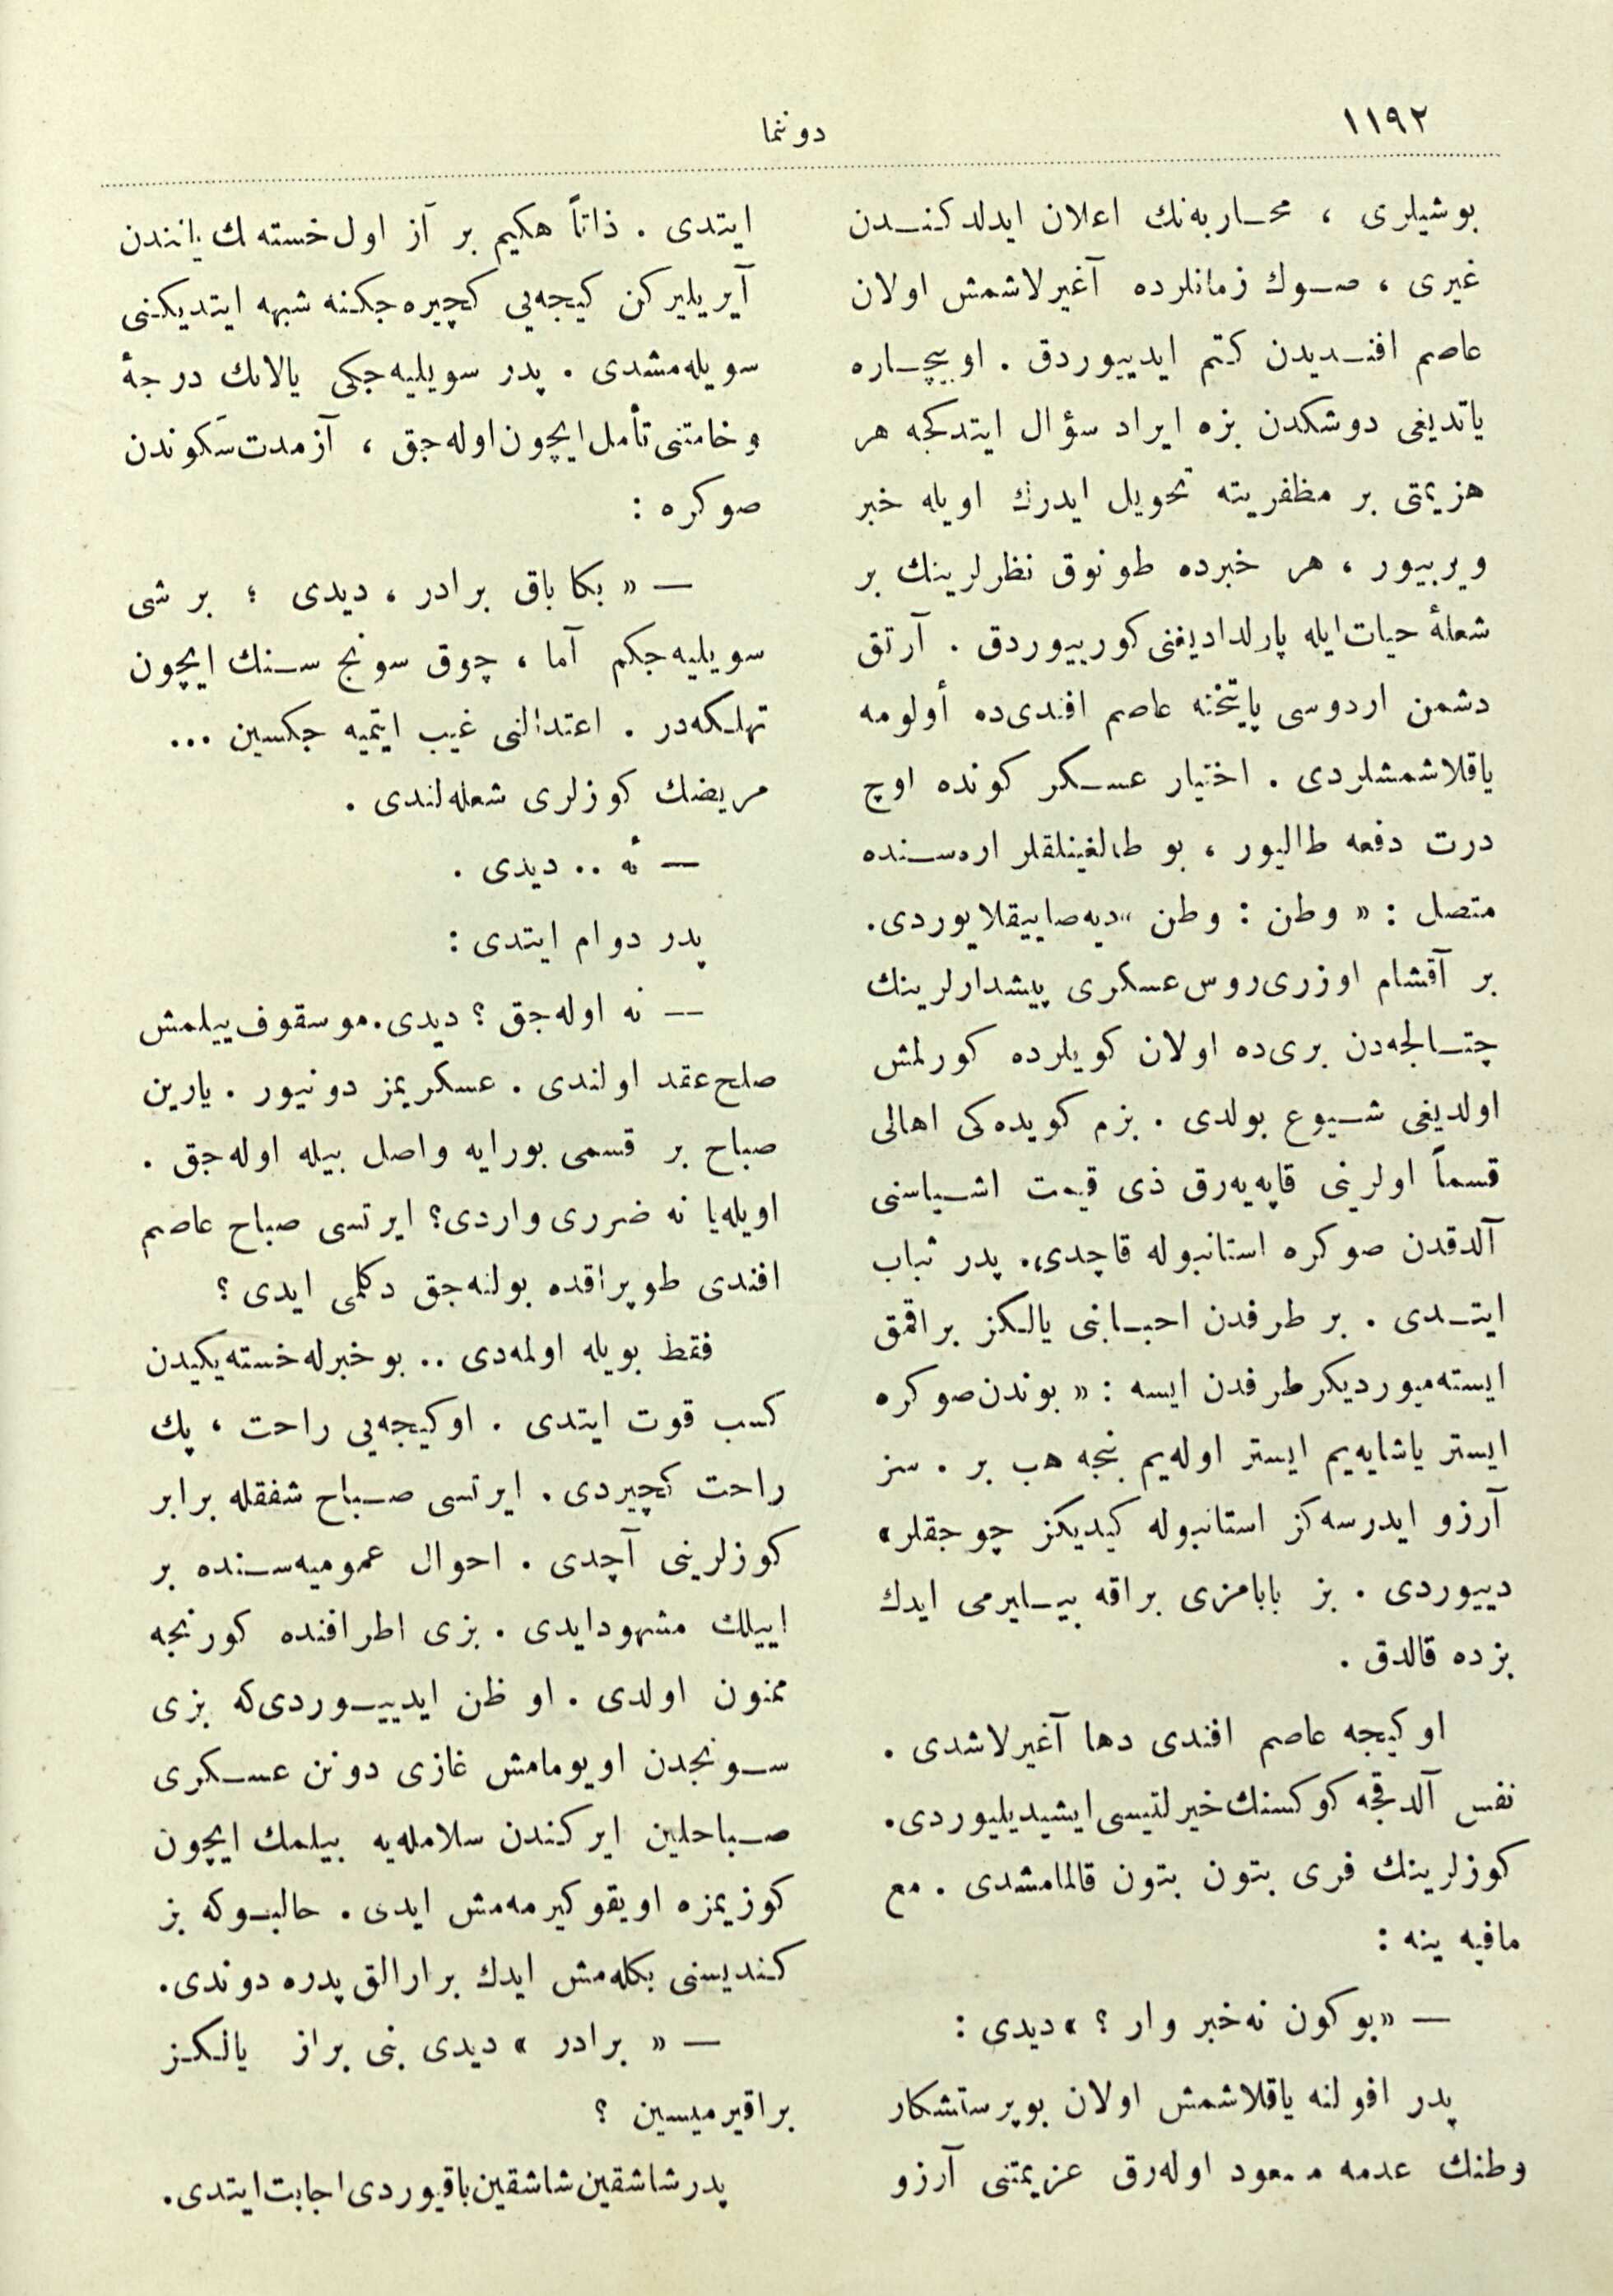 ١١٩٢
دوننما
بوشيلری ، محاربه‌نك اعلان ايدلدكنـدن
غيری ، صـوك زمانلرده آغيرلاشمش اولان
عاصم افنـديدن كتم ايدييوردق . اوبيچـاره
ياتديغی دوشكدن بزه ايراد سؤال ايتدكجه هر
هزيمتی بر مظفريته تحويل ايدرك اويله خبر
ويرييور ، هر خبرده طونوق نظرلرينك بر
شعلهٔ حيات ايله پارلداديغنی كورييوردق . آرتق
دشمن اردوسی پايتخته عاصم افندی‌ده أولومه
ياقلاشمشلردی . اختيار عسـكر كونده اوچ
درت دفعه طاليور ، بو طالغينلقلر اره‌سـنده
متصل : « وطن : وطن » ديه صاييقلايوردی.
بر آقشام اوزری روس عسكری پيشدارلرينك
چتـالجه‌دن بری‌ده اولان كويلرده كورلمش
اولديغی شـيوع بولدی . بزم كويده‌كی اهالی
قسماً اولرينی قاپه‌يه‌رق ذی قيمت اشـياسنی
آلدقدن صوكره استانبوله قاچدی. پدر ثبات
ايتـدی . بر طرفدن احبـابنی يالـكز براقمق
ايسته‌ميور ديكر طرفدن ايسه : « بوندن صوكره
ايستر ياشايه‌يم ايستر اوله‌يم بنجه هب بر . سز
آرزو ايدرسه‌كز استانبوله كيديكز چوجقلر»
دييوردی . بز بابامزی براقه بيـليرمی ايدك
بزده قالدق .
او كيجه عاصم افندی دها آغيرلاشدی .
نفس آلدقجه كوكسنك خيرلتيسی ايشيديليوردی.
كوزلرينك فری بتون بتون قالمامشدی . مع
مافيه ينه :
— «بوكون نه خبر وار ؟ » ديدی :
پدر افولنه ياقلاشمش اولان بوپرستشكار
وطنك عدمه مسعود اوله‌رق عزيمتنی آرزو
ايتدی . ذاتاً حكيم بر آز اول خسته‌نك يانندن
آيريليركن كيجه‌يی كچيره‌جكنه شبهه ايتديكنی
سويله‌مشدی . پدر سويليه‌جكی يالانك درجهٔ
وخامتنی تأمل ايچون اوله‌جق ، آز مدت سكوندن
صوكره :
— « بكا باق برادر ، ديدی ؛ بر شی
سويليه‌جكم آما ، چوق سونج سـنك ايچون
تهلـكه‌در . اعتدالنی غيب ايتميه جكسين ...
مريضك كوزلری شعله‌لندی .
— نه .. ديدی .
پدر دوام ايتدی :
— نه اوله‌جق ؟ ديدی. موسقوف ييلمش
صلح عقد اولندی . عسكريمز دونيور . يارين
صباح بر قسمی بورايه واصل بيله اوله‌جق .
اويله‌يا نه ضرری واردی؟ ايرتسی صباح عاصم
افندی طوپراقده بولنه‌جق دكلمی ايدی ؟
فقط بويله اولمه‌دی .. بو خبرله خسته يكيدن
كسب قوت ايتدی . او كيجه‌يی راحت ، پك
راحت كچيردی . ايرتسی صـباح شفقله برابر
كوزلرينی آچدی . احوال عموميه‌سـنده بر
اييلك مشهود ايدی . بزی اطرافنده كورنجه
ممنون اولدی . او ظن ايدييـوردی‌كه بزی
سـونجدن اويومامش غازی دونن عسـكری
صـباحلين ايركندن سلامله‌يه بيلمك ايچون
كوزيمزه اويقو كيرمه‌مش ايدی . حالبـوكه بز
كنديسنی بكله‌مش ايدك برارالق پدره دوندی.
— « برادر » ديدی بنی براز يالـكز
براقيرميسين ؟
پدر شاشقين شاشقين باقيوردی اجابت ايتدی.